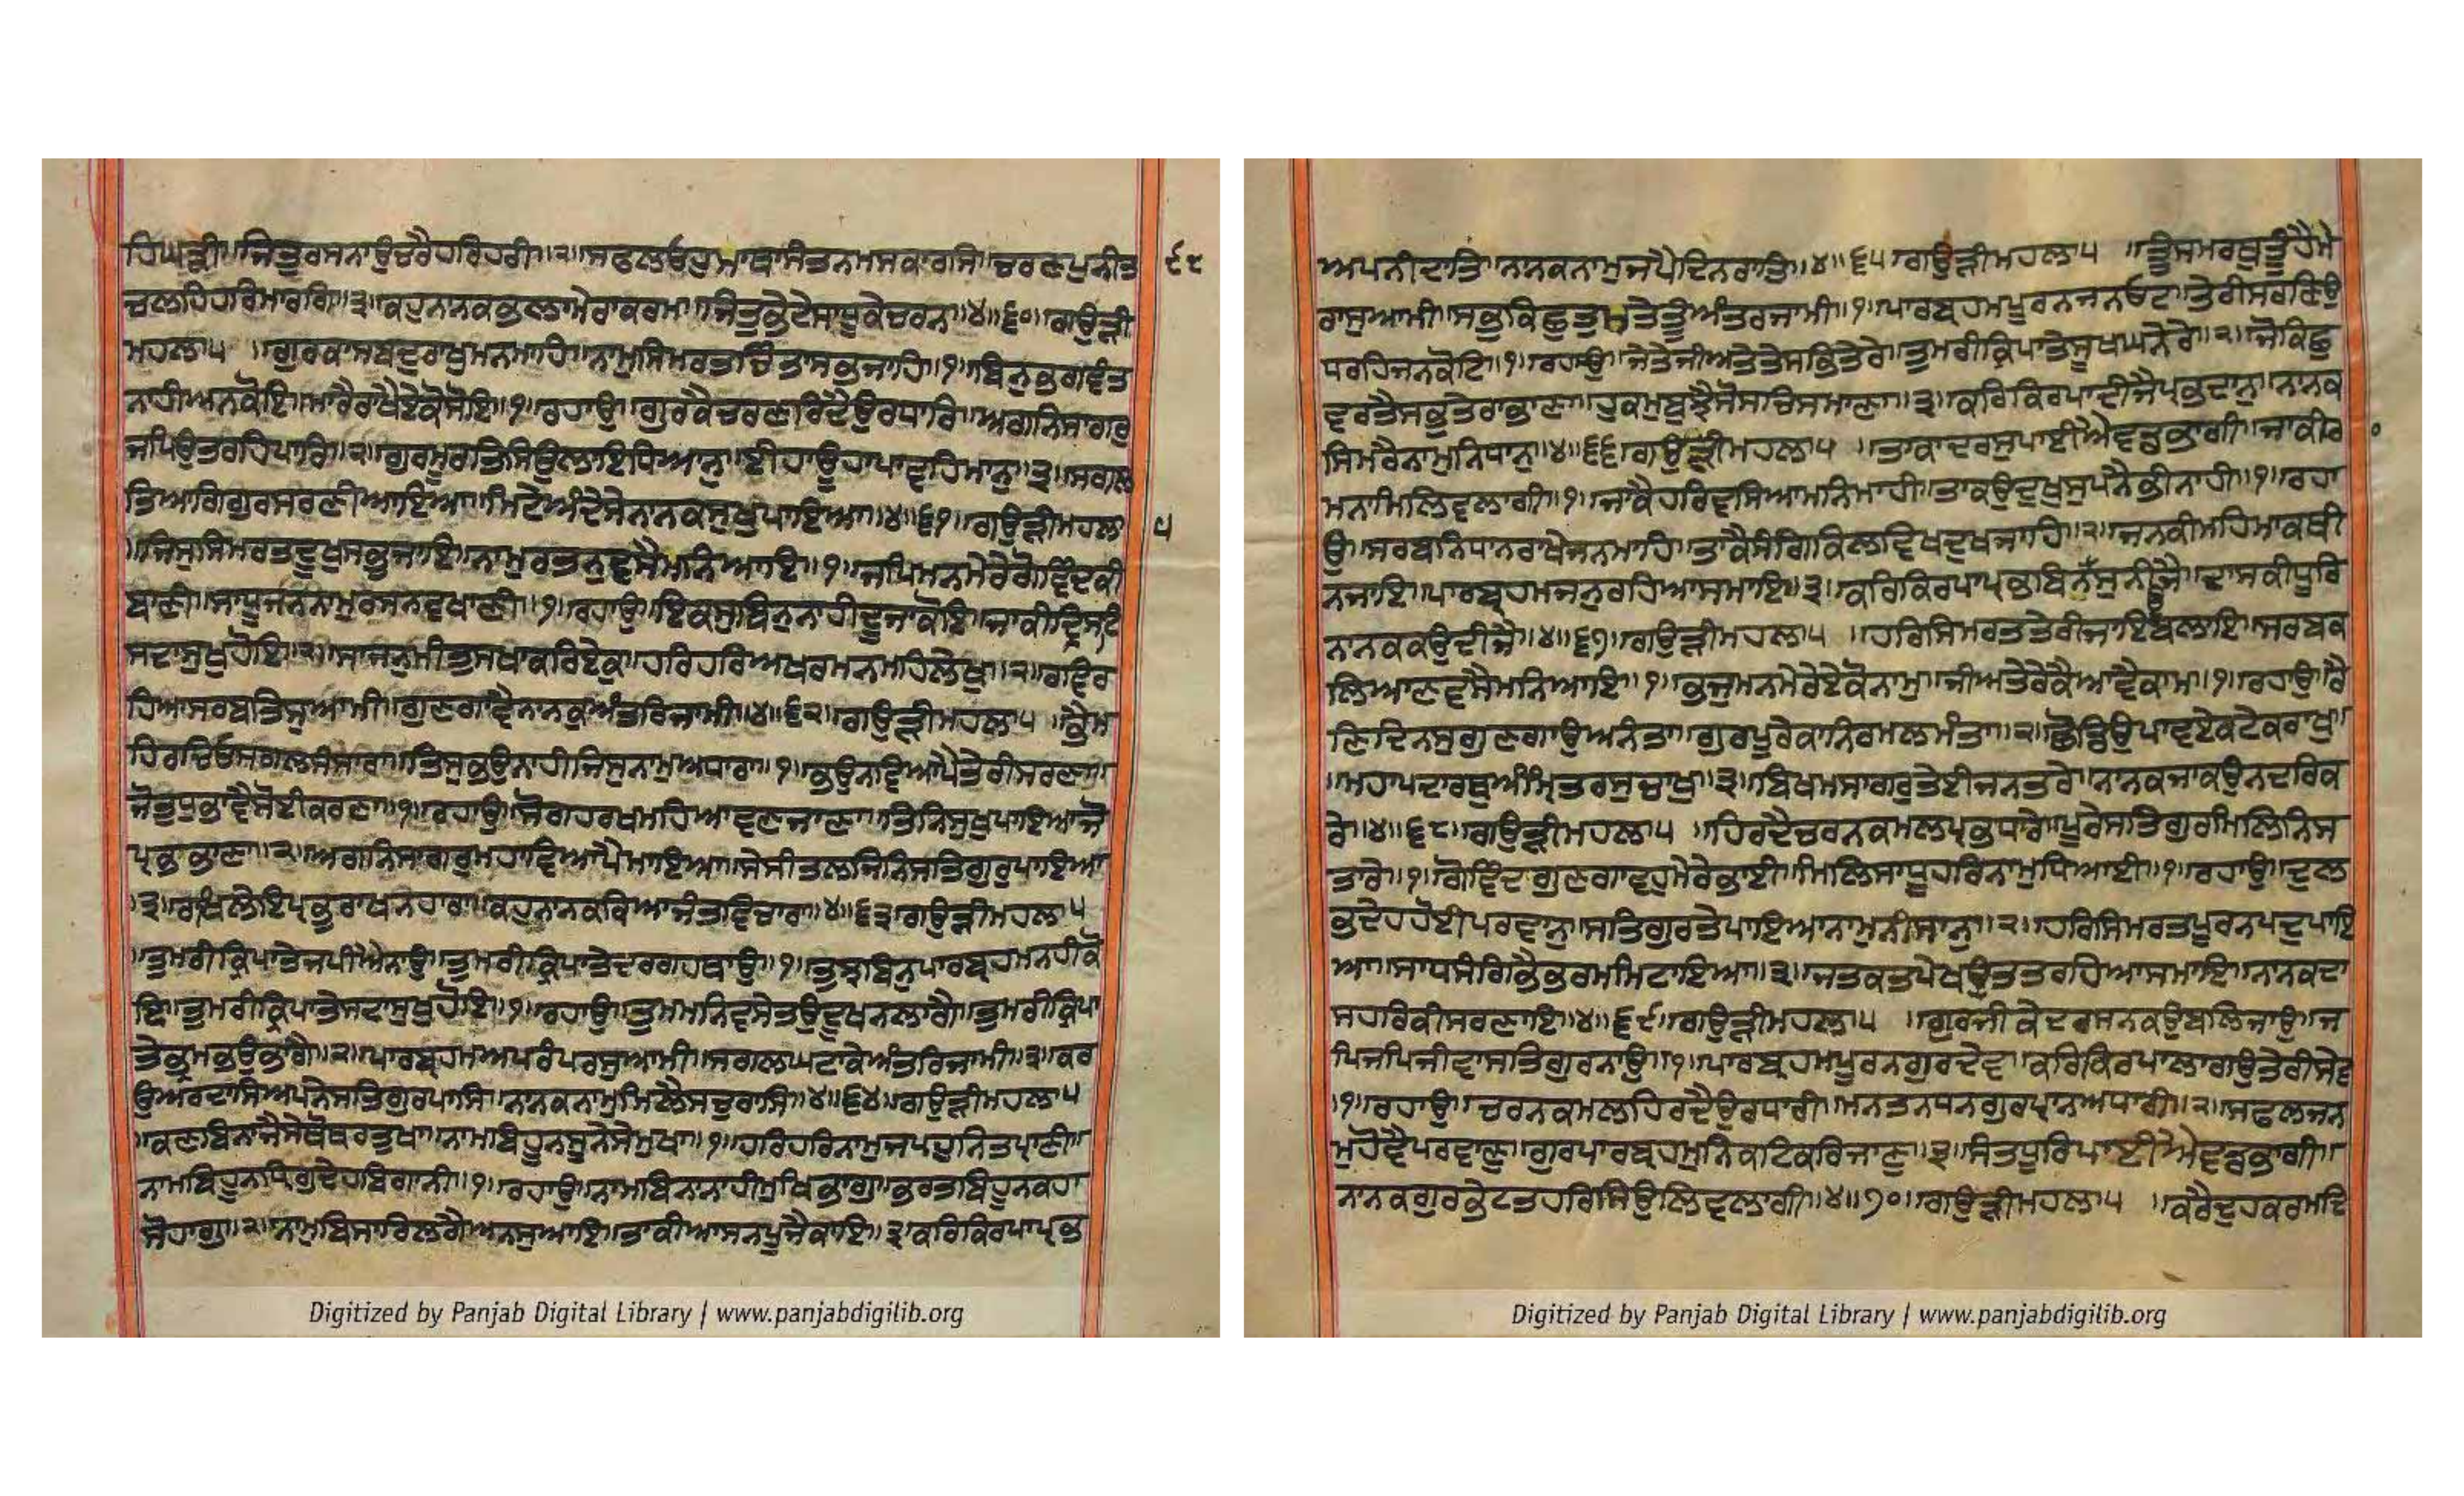 ਹਿਘੜੀ॥ਜਿਤੁਰਸਨਾਉਚਰੈਹਰਿਹਰੀ॥੨॥ਸਫਲਓਹੁਮਾਥਾਸੰਤਨਮਸਕਾਰਸਿ॥ਚਰਣਪੁਨੀਤ ੯੮
ਚਲਹਿਹਰਿਮਾਰਗਿ॥੩॥ਕਹੁਨਾਨਕਭਲਾਮੇਰਾਕਰਮ॥ਜਿਤੁਭੇਟੇਸਾਧੂਕੇਚਰਨ॥੪॥੬੦॥ਗਉੜੀ
ਮਹਲਾ੫ ॥ਗੁਰਕਾਸਬਦੁਰਾਖੁਮਨਮਾਹਿ॥ਨਾਮੁਸਿਮਰਤਚਿੰਤਾਸਭੁਜਾਹਿ॥੧॥ਬਿਨੁਭਗਵੰਤ
ਨਾਹੀਅਨਕੋਇ॥ਮਾਰੈਰਾਖੈਏਕੋਸੋਇ॥੧॥ਰਹਾਉ॥ਗੁਰਕੈਚਰਣਰਿਦੈਉਰਧਾਰਿ॥ਅਗਨਿਸਾਗਰੁ
ਜਪਿਉਤਰਹਿਪਾਰਿ॥੨॥ਗੁਰਮੂਰਤਿਸਿਉਲਾਇਧਿਆਨੁ॥ਈਹਾਊਹਾਪਾਵਹਿਮਾਨੁ॥੩॥ਸਗਲ
ਤਿਆਗਿਗੁਰਸਰਣੀਆਇਆ॥ਮਿਟੇਅੰਦੇਸੇਨਾਨਕਸੁਖੁਪਾਇਆ॥੪॥੬੧॥ਗਉੜੀਮਹਲਾ ੫
॥ਜਿਸੁਸਿਮਰਤਦੂਖੁਸਭੁਜਾਇ॥ਨਾਮੁਰਤਨੁਵਸੈਮਨਿਆਇ॥੧॥ਜਪਿਮਨਮੇਰੇਗੋਵਿੰਦਕੀ
ਬਾਣੀ॥ਸਾਧੂਜਨਨਾਮੁਰਸਨਵਖਾਣੀ॥੧॥ਰਹਾਉ॥ਇਕਸੁਬਿਨੁਨਾਹੀਦੂਜਾਕੋਇ॥ਜਾਕੀਦ੍ਰਿਸਟਿ
ਸਦਾਸੁਖੁਹੋਇ॥੨॥ਸਾਜਨੁਮੀਤੁਸਖਾਕਰਿਏਕੁ॥ਹਰਿਹਰਿਅਖਰਮਨਮਹਿਲੇਖੁ॥੨॥ਰਵਿਰ
ਹਿਆਸਰਬਤਿਸੁਆਮੀ॥ਗੁਣਗਾਵੈਨਾਨਕੁਅੰਤਰਿਜਾਮੀ॥੪॥੬੨॥ਗਉੜੀਮਹਲਾ੫ ॥ਭੈਮ
ਹਿਰਚਿਓਸਗਲਸੰਸਾਰਾ॥ਤਿਸੁਭਉਨਾਹੀਜਿਸੁਨਾਮੁਅਧਾਰਾ॥੧॥ਭਉਨਵਿਆਪੈਤੇਰੀਸਰਣਾ॥
ਜੋਤੁਧੁਭਾਵੈਸੋਈਕਰਣਾ॥੧॥ਰਹਾਉ॥ਸੋਗਹਰਖਮਹਿਆਵਣਜਾਣਾ॥ਤਿਨਿਸੁਖੁਪਾਇਆਜੋ
ਪ੍ਰਭਭਾਣਾ॥੨॥ਅਗਨਿਸਾਗਰੁਮਹਾਵਿਆਪੈਮਾਇਆ॥ਸੇਸੀਤਲਜਿਨਿਸਤਿਗੁਰੁਪਾਇਆ
॥੩॥ਰਾਖਿਲੇਇਪ੍ਰਭੁਰਾਖਨਹਾਰਾ॥ਕਹੁਨਾਨਕਕਿਆਜੰਤਵਿਚਾਰਾ॥੪॥੬੩॥ਗਉੜੀਮਹਲਾ੫
॥ਤੁਮਰੀਕ੍ਰਿਪਾਤੇਜਪੀਐਨਾਉ॥ਤੁਮਰੀਕ੍ਰਿਪਾਤੇਦਰਗਹਥਾਉ॥੧॥ਤੁਝਬਿਨੁਪਾਰਬ੍ਰਹਮਨਹੀਕੋ
ਇ॥ਤੁਮਰੀਕ੍ਰਿਪਾਤੇਸਦਾਸੁਖੁਹੋਇ॥੧॥ਰਹਾਉ॥ਤੁਮਮਨਿਵਸੇਤਉਦੂਖੁਨਲਾਗੈ॥ਤੁਮਰੀਕ੍ਰਿਪਾ
ਤੇਭ੍ਰਮਭਉਭਾਗੈ॥੨॥ਪਾਰਬ੍ਰਹਮਅਪਰੰਪਰਸੁਆਮੀ॥ਸਗਲਘਟਾਕੇਅੰਤਰਿਜਾਮੀ॥੩॥ਕਰ
ਉਅਰਦਾਸਿਅਪਨੇਸਤਿਗੁਰਪਾਸਿ॥ਨਾਨਕਨਾਮੁਮਿਲੈਸਚੁਰਾਸਿ॥੪॥੬੪॥ਗਉੜੀਮਹਲਾ੫
॥ਕਣਬਿਨਾਜੈਸੇਥੋਥਰਤੁਖਾ॥ਨਾਮਬਿਹੂਨਸੂਨੇਸੇਮੁਖਾ॥੧॥ਹਰਿਹਰਿਨਾਮੁਜਪਹੁਨਿਤਪ੍ਰਾਣੀ॥
ਨਾਮਬਿਹੂਨਧ੍ਰਿਗੁਦੇਹਬਿਗਾਨੀ॥੧॥ਰਹਾਉ॥ਨਾਮਬਿਨਾਨਾਹੀਮੁਖਿਭਾਗੁ॥ਭਰਤਬਿਹੂਨਕਹਾ
ਸੋਹਾਗੁ॥੨॥ਨਾਮੁਬਿਸਾਰਿਲਗੈਅਨਸੁਆਇ॥ਤਾਕੀਆਸਨਪੂਜੈਕਾਇ॥੩॥ਕਰਿਕਿਰਪਾਪ੍ਰਭ
Digitized by Panjab Digital Library | www.panjabdigilib.org
ਅਪਨੀਦਾਤਿ॥ਨਾਨਕਨਾਮੁਜਪੈਦਿਨਰਾਤਿ॥੪॥੬੫॥ਗਉੜੀਮਹਲਾ੫ ॥ਤੂੰਸਮਰਥੁਤੂੰਹੈਮੇ
ਰਾਸੁਆਮੀ॥ਸਭੁਕਿਛੁਤੁਮਤੇਤੂੰਅੰਤਰਜਾਮੀ॥੧॥ਪਾਰਬ੍ਰਹਮਪੂਰਨਜਨਓਟ॥ਤੇਰੀਸਰਣਿਉ
ਧਰਹਿਜਨਕੋਟਿ॥੧॥ਰਹਾਉ॥ਜੇਤੇਜੀਅਤੇਤੇਸਭਿਤੇਰੇ॥ਤੁਮਰੀਕ੍ਰਿਪਾਤੇਸੂਖਘਨੇਰੇ॥੨॥ਜੋਕਿਛੁ
ਵਰਤੈਸਭੁਤੇਰਾਭਾਣਾ॥ਹੁਕਮੁਬੁਝੈਸੋਸਚਿਸਮਾਣਾ॥੩॥ਕਰਿਕਿਰਪਾਦੀਜੈਪ੍ਰਭਦਾਨੁ॥ਨਾਨਕ
ਸਿਮਰੈਨਾਮੁਨਿਧਾਨੁ॥੪॥੬੬॥ਗਉੜੀਮਹਲਾ੫ ॥ਤਾਕਾਦਰਸੁਪਾਈਐਵਡਭਾਗੀ॥ਜਾਕੀਰ
ਮਨਾਮਿਲਿਵਲਾਗੀ॥੧॥ਜਾਕੈਹਰਿਵਸਿਆਮਨਿਮਾਹੀ॥ਤਾਕਉਦੁਖੁਸੁਪਨੈਭੀਨਾਹੀ॥੧॥ਰਹਾ
ਉ॥ਸਰਬਨਿਧਾਨਰਾਖੇਜਨਮਾਹਿ॥ਤਾਕੈਸੰਗਿਕਿਲਵਿਖਦੁਖਜਾਹਿ॥੨॥ਜਨਕੀਮਹਿਮਾਕਥੀ
ਨਜਾਇ॥ਪਾਰਬ੍ਰਹਮੁਜਨੁਰਹਿਆਸਮਾਇ॥੩॥ਕਰਿਕਿਰਪਾਪ੍ਰਭਬਿਨਉਸੁਨੀਜੈ॥ਦਾਸਕੀਧੂਰਿ
ਨਾਨਕਕਉਦੀਜੈ॥੪॥੬੭॥ਗਉੜੀਮਹਲਾ੫ ॥ਹਰਿਸਿਮਰਤਤੇਰੀਜਾਇਬਲਾਇ॥ਸਰਬਕ
ਲਿਆਣਵਸੈਮਨਿਆਇ॥੧॥ਭਜੁਮਨਮੇਰੇਏਕੋਨਾਮੁ॥ਜੀਅਤੇਰੇਕੈਆਵੈਕਾਮ॥੧॥ਰਹਾਉ॥ਰੈ
ਣਿਦਿਨਸੁਗੁਣਗਾਉਅਨੰਤਾ॥ਗੁਰਪੂਰੇਕਾਨਿਰਮਲਮੰਤਾ॥੨॥ਛੋਡਿਉਪਾਵਏਕਟੇਕਰਾਖੁ॥
॥ਮਹਾਪਦਾਰਥੁਅੰਮ੍ਰਿਤਰਸੁਚਾਖੁ॥੩॥ਬਿਖਮਸਾਗਰੁਤੇਈਜਨਤਰੇ॥ਨਾਨਕਜਾਕਉਨਦਰਿਕ
ਰੇ॥੪॥੬੮॥ਗਉੜੀਮਹਲਾ੫ ॥ਹਿਰਦੈਚਰਨਕਮਲਪ੍ਰਭਧਾਰੇ॥ਪੂਰੇਸਤਿਗੁਰਮਿਲਿਨਿਸ
ਤਾਰੇ॥੧॥ਗੋਵਿੰਦਗੁਣਗਾਵਹੁਮੇਰੇਭਾਈ॥ਮਿਲਿਸਾਧੂਹਰਿਨਾਮੁਧਿਆਈ॥੧॥ਰਹਾਉ॥ਦੁਲ
ਭਦੇਹਹੋਈਪਰਵਾਨੁ॥ਸਤਿਗੁਰਤੇਪਾਇਆਨਾਮੁਨੀਸਾਨੁ॥੨॥ਹਰਿਸਿਮਰਤਪੂਰਨਪਦੁਪਾਇ
ਆ॥ਸਾਧਸੰਗਿਭੈਭਰਮਮਿਟਾਇਆ॥੩॥ਜਤਕਤਪੇਖਉਤਤਰਹਿਆਸਮਾਇ॥ਨਾਨਕਦਾ
ਸਹਰਿਕੀਸਰਣਾਇ॥੪॥੬੯॥ਗਉੜੀਮਹਲਾ੫ ॥ਗੁਰਜੀਕੇਦਰਸਨਕਉਬਲਿਜਾਉ॥ਜ
ਪਿਜਪਿਜੀਵਾਸਤਿਗੁਰਨਾਉ॥੧॥ਪਾਰਬ੍ਰਹਮਪੂਰਨਗੁਰਦੇਵ॥ਕਰਿਕਿਰਪਾਲਾਗਉਤੇਰੀਸੇਵ
॥੧॥ਰਹਾਉ॥ਚਰਨਕਮਲਹਿਰਦੈਉਰਧਾਰੀ॥ਮਨਤਨਧਨਗੁਰਪ੍ਰਾਨਅਧਾਰੀ॥੨॥ਸਫਲਜਨ
ਮੁਹੋਵੈਪਰਵਾਣੁ॥ਗੁਰਪਾਰਬ੍ਰਹਮੁਨਿਕਟਿਕਰਿਜਾਣੁ॥੩॥ਸੰਤਧੂਰਿਪਾਈਐਵਡਭਾਗੀ॥
ਨਾਨਕਗੁਰਭੇਟਤਹਰਿਸਿਉਲਿਵਲਾਗੀ॥੪॥੭੦॥ਗਉੜੀਮਹਲਾ੫ ॥ਕਰੈਦੁਹਕਰਮਦਿ
Digitized by Panjab Digital Library | www.panjabdigilib.org